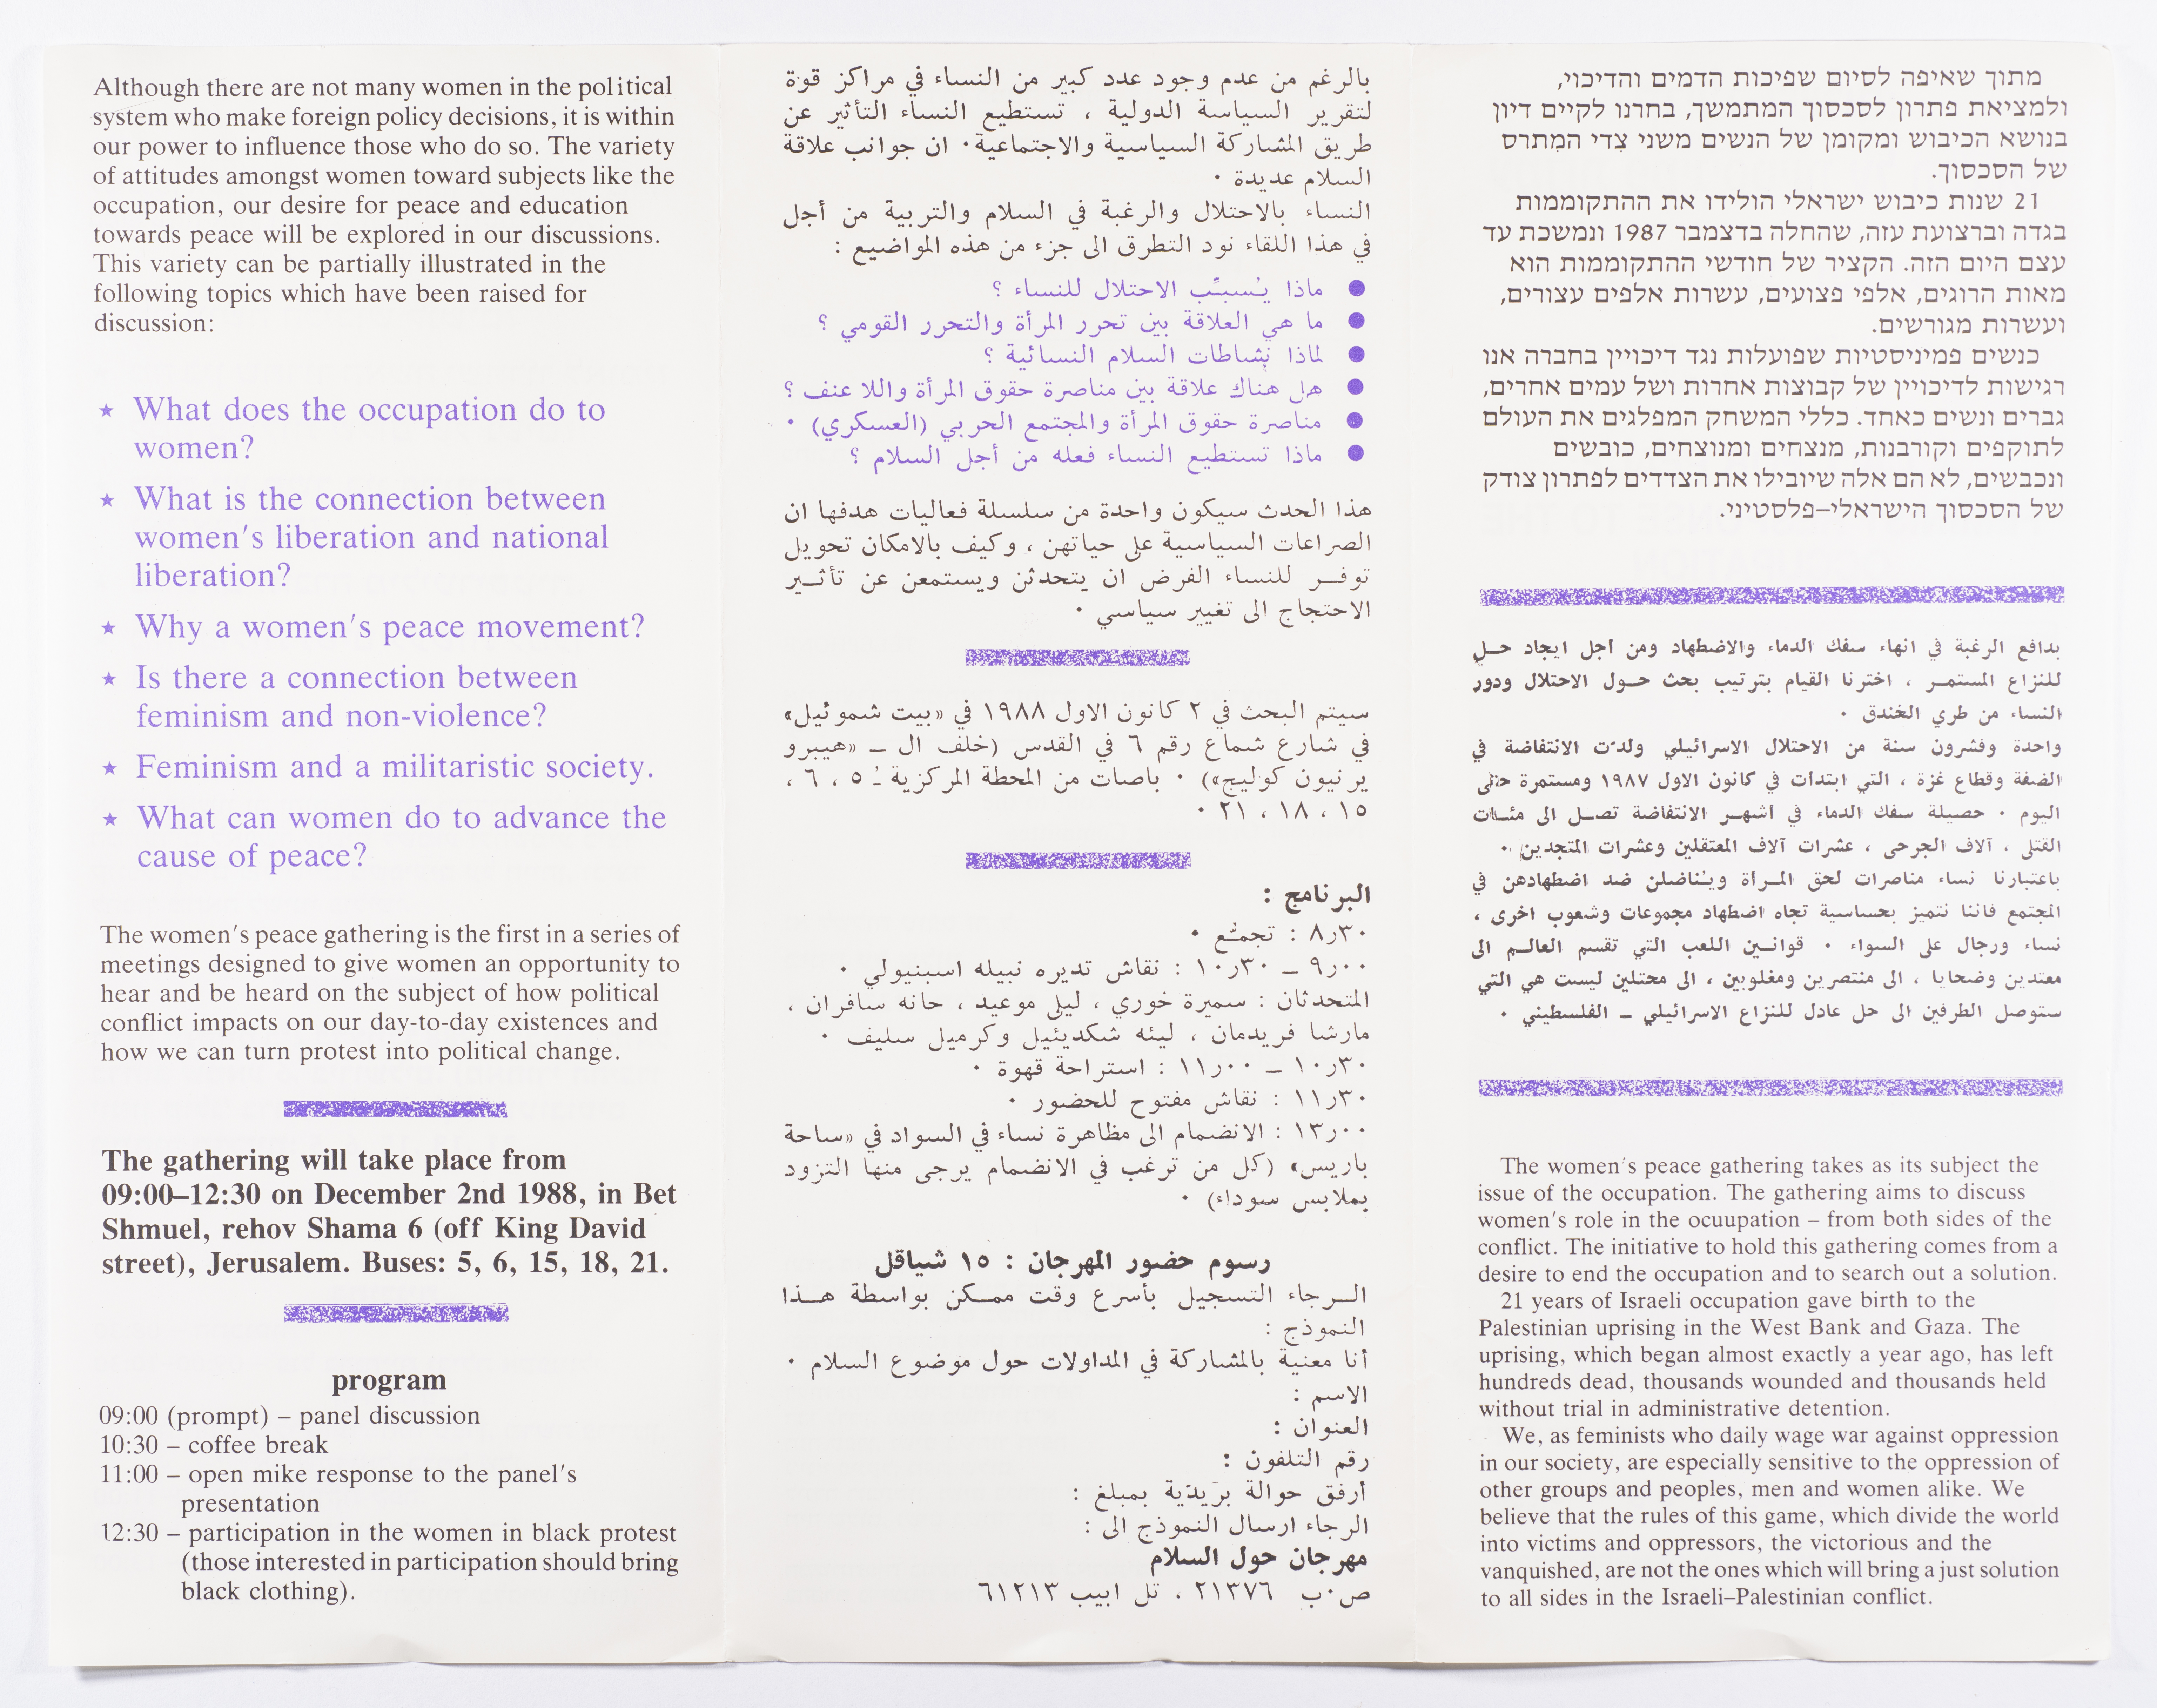 Although there are not many women in the political
system who make foreign policy decisions, it is within
our power to influence those who do so. The variety
of attitudes amongst women toward subjects like the
occupation, our desire for peace and education
towards peace will be explored in our discussions.
This variety can be partially illustrated in the
following topics which have been raised for
discussion:
★ What does the occupation do to
women?
★ What is the connection between
women's liberation and national
liberation?
★ Why a women's peace movement?
★ Is there a connection between
feminism and non-violence?
★ Feminism and a militaristic society.
★ What can women do to advance the
cause of peace?
The women's peace gathering is the first in a series of
meetings designed to give women an opportunity to
hear and be heard on the subject of how political
conflict impacts on our day-to-day existences and
how we can turn protest into political change.
The gathering will take place from
09:00–12:30 on December 2nd 1988, in Bet
Shmuel, rehov Shama 6 (off King David
street), Jerusalem. Buses: 5, 6, 15, 18, 21.
program
09:00 (prompt) – panel discussion
10:30 – coffee break
11:00 – open mike response to the panel's
presentation
12:30 – participation in the women in black protest
(those interested in participation should bring
black clothing).
بالرغم من عدم وجود عدد كبير من النساء في مراكز قوة
لتقرير السياسة الدولية ، تستطيع النساء التأثير عن
طريق المشاركة السياسية والاجتماعية٠ ان جوانب علاقة
السلام عديدة ٠
النساء بالاحتلال والرغبة في السلام والتربية من أجل
في هذا اللقاء نود التطرق الى جزء من هذه المواضيع :
● ماذا يُسبّب الاحتلال للنساء ؟
● ما هي العلاقة بين تحرر المرأة والتحرر القومي ؟
● لماذا نشاطات السلام النسائية ؟
● هل هناك علاقة بين مناصرة حقوق المرأة واللا عنف ؟
● مناصرة حقوق المرأة والمجتمع الحربي (العسكري) ٠
● ماذا تستطيع النساء فعله من أجل السلام ؟
هذا الحدث سيكون واحدة من سلسلة فعاليات هدفها ان
الصراعات السياسية على حياتهن ، وكيف بالامكان تحويل
توفـر للنساء الفرض ان يتحدثن ويستمعن عن تأثـير
الاحتجاج الى تغيير سياسي ٠
سيتم البحث في ٢ كانون الاول ١٩٨٨ في «بيت شموئيل»
في شارع شماع رقم ٦ في القدس (خلف ال ــ «هيبرو
يرنيون كوليج») ٠ باصات من المحطة المركزية : ٥ ، ٦ ،
١٥ ، ١٨ ، ٢١ ٠
البرنامج :
٨٫٣٠ : تجمّع ٠
٩٫٠٠ ــ ١٠٫٣٠ : نقاش تديره نبيله اسبنيولي ٠
المتحدثان : سميرة خوري ، ليلى موعيد ، حانه سافران ،
مارشا فريدمان ، ليئه شكديئيل وكرميل سليف ٠
١٠٫٣٠ ــ ١١٫٠٠ : استراحة قهوة ٠
١١٫٣٠ : نقاش مفتوح للحضور ٠
١٣٫٠٠ : الانضمام الى مظاهرة نساء في السواد في «ساحة
باريس» (كل من ترغب في الانضمام يرجى منها التزود
بملابس سوداء) ٠
رسوم حضور المهرجان : ١٥ شياقل
الـرجاء التسجيل بأسرع وقت ممـكن بواسطة هـذا
النموذج :
أنا معنية بالمشاركة في المداولات حول موضوع السلام ٠
الاسم :
العنوان :
رقم التلفون :
أرفق حوالة بريديّة بمبلغ :
الرجاء ارسال النموذج الى :
مهرجان حول السلام
ص٠ب ٢١٣٧٦ ، تل ابيب ٦١٢١٣
מתוך שאיפה לסיום שפיכות הדמים והדיכוי,
ולמציאת פתרון לסכסוך המתמשך, בחרנו לקיים דיון
בנושא הכיבוש ומקומן של הנשים משני צדי המתרס
של הסכסוך.
21 שנות כיבוש ישראלי הולידו את ההתקוממות
בגדה וברצועת עזה, שהחלה בדצמבר 1987 ונמשכת עד
עצם היום הזה. הקציר של חודשי ההתקוממות הוא
מאות הרוגים, אלפי פצועים, עשרות אלפים עצורים,
ועשרות מגורשים.
כנשים פמיניסטיות שפועלות נגד דיכויין בחברה אנו
רגישות לדיכויין של קבוצות אחרות ושל עמים אחרים,
גברים ונשים כאחד. כללי המשחק המפלגים את העולם
לתוקפים וקורבנות, מנצחים ומנוצחים, כובשים
ונכבשים, לא הם אלה שיובילו את הצדדים לפתרון צודק
של הסכסוך הישראלי–פלסטיני.
بدافع الرغبة في انهاء سفك الدماء والاضطهاد ومن أجل ايجاد حـل
للنزاع المستمـر ، اخترنا القيام بترتيب بحث حـول الاحتلال ودور
النساء من طرفي الخندق ٠
واحدة وفشرون سنة من الاحتلال الاسرائيلي ولدّت الانتفاضة في
الضفة وقطاع غزة ، التي ابتدأت في كانون الاول ١٩٨٧ ومستمرة حتى
اليوم ٠ حصيلة سفك الدماء في أشهـر الانتفاضة تصـل الى مئـات
القتلى ، آلاف الجرحى ، عشرات آلاف المعتقلين وعشرات المتجدين ٠
باعتبارنا نساء مناصرات لحق المـرأة ويناضلن ضد اضطهادهن في
المجتمع فاننا نتميز بحساسية تجاه اضطهاد مجموعات وشعوب اخرى ،
نساء ورجال على السواء ٠ قوانـين اللعب التي تقسم العالـم الى
معتدين وضحايا ، الى منتصرين ومغلوبين ، الى محتلين ليست هي التي
ستوصل الطرفين الى حل عادل للنزاع الاسرائيلي ــ الفلسطيني ٠
The women's peace gathering takes as its subject the
issue of the occupation. The gathering aims to discuss
women's role in the ocuupation – from both sides of the
conflict. The initiative to hold this gathering comes from a
desire to end the occupation and to search out a solution.
21 years of Israeli occupation gave birth to the
Palestinian uprising in the West Bank and Gaza. The
uprising, which began almost exactly a year ago, has left
hundreds dead, thousands wounded and thousands held
without trial in administrative detention.
We, as feminists who daily wage war against oppression
in our society, are especially sensitive to the oppression of
other groups and peoples, men and women alike. We
believe that the rules of this game, which divide the world
into victims and oppressors, the victorious and the
vanquished, are not the ones which will bring a just solution
to all sides in the Israeli–Palestinian conflict.